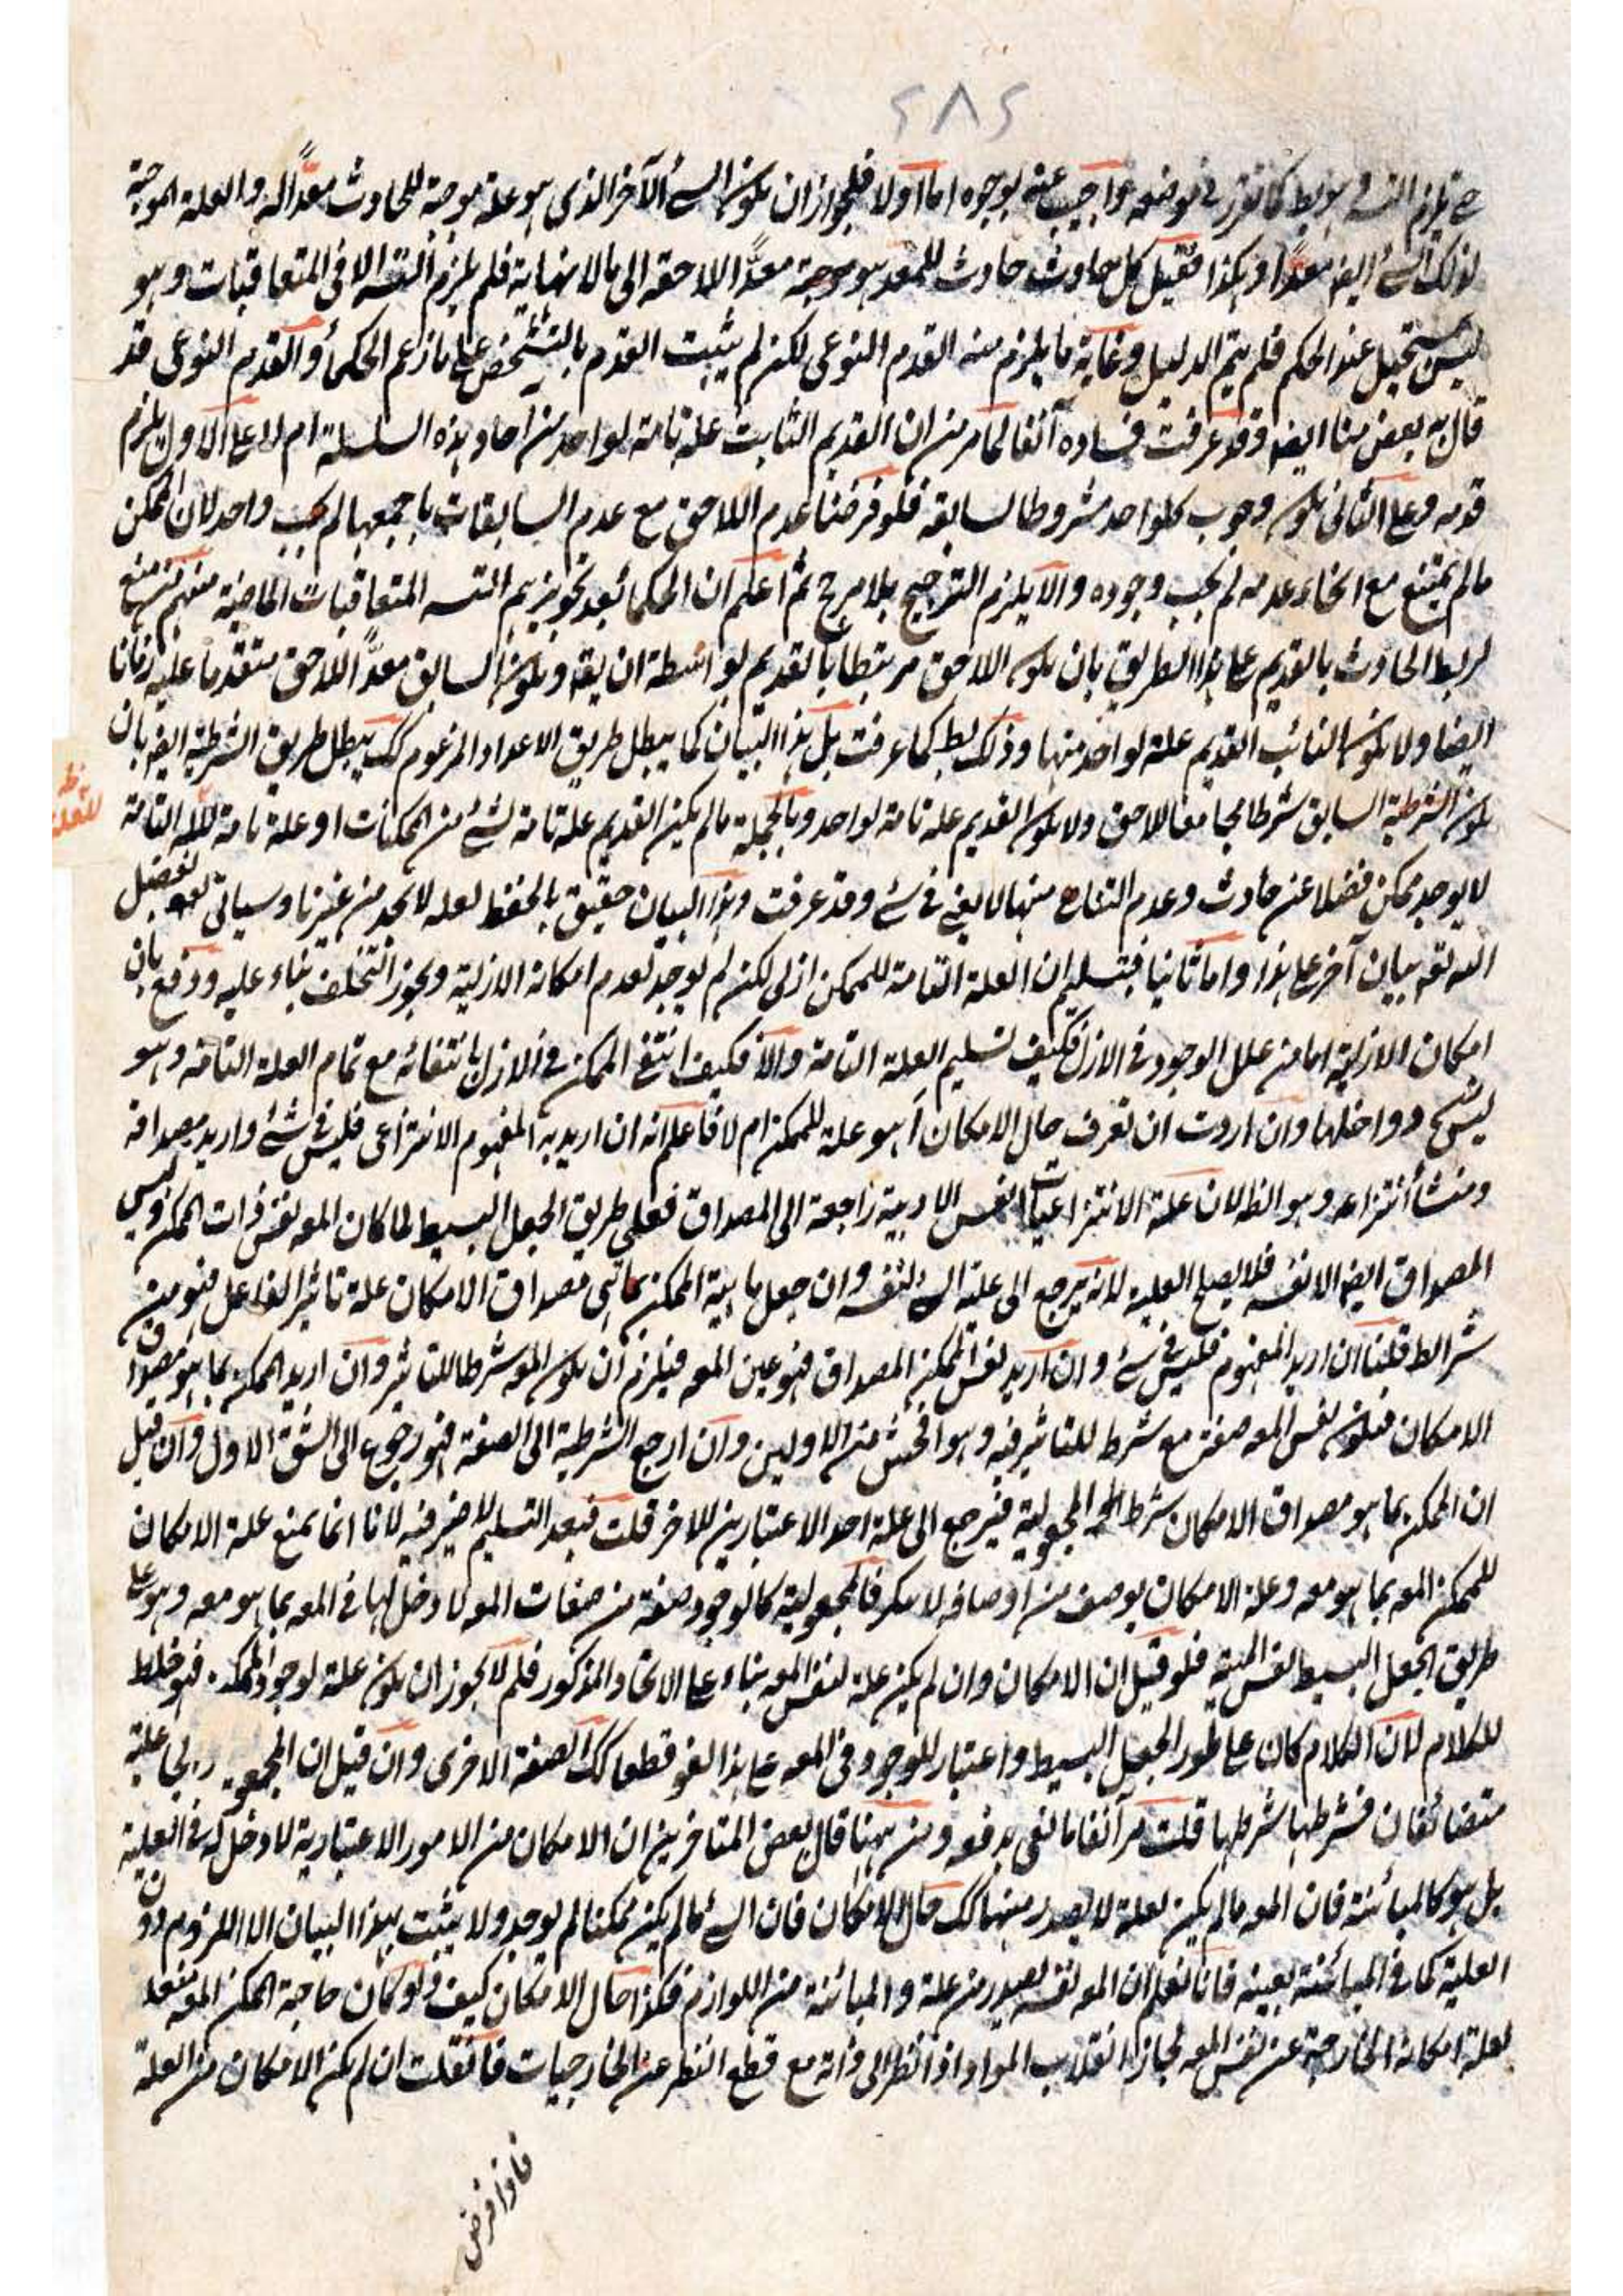 ٢٨٤
يلزم التسـ وهو بط كما تقرر في موضعه واجيب عنه بوجوه اما اولا فلجواز ان يكون الشئ الآخر الذى هو علة موجبة للحادث معدًّا له والعلة الموجبة
لذلك الشئ ايضا معدًّا وهكذا فقبل كل حادث حادث للمعد هو موجبة معدًّا للاحقه الى مالا نهاية فلم يلزم التسـ الا فى المتعاقبات وهو
ليس بمستحيل عند الحكم فلم يتم الدليل وغاية ما يلزم منه القدم النوعى لكن لم يثبت القدم بالتشخص على ما زعم الحكماء والقدم النوعى قد
قال به بعض منا ايضا وقد عرفت فساده آنفا لما مر من ان القديم الثابت علة تامة لواحد من آحاد هذه السلسلة ام لا على الاول يلزم
قدمه وعلى الثانى يكون وجوب كل واحد مشروطا لسابقه فلو فرضنا عدم اللاحق مع عدم السابقات باجمعها لم يجب واحد لان الممكن
مالم يمتنع مع انحاء عدمه لم يجب وجوده والا يلزم الترجيح بلا مرجح ثم اعلم ان الحكماء بعد تجويزهم التسـ المتعاقبات الماضية منهم من منع
لربط الحادث بالقديم على هذا الطريق بان يكون اللاحق مرتبطا بالقديم بواسطة ان يقه ويكون السابق معدًّا للاحق متقدما عليه زمانا
ايضا ولا يكون الثابت القديم علة لواحد منها وذلك بط كما عرفت بل هذا البيان كما يبطل طريق الاعداد المزعوم كك يبطل طريق الشرطية ايضا بان
يكون الشرطية السابق شرطا مجامعا للاحق ولا يكون القديم علة تامة لواحد وبالجملة مالم يكن القديم علة تامة لشئ من الممكنات او علة تامة للعلة التامة
لا يوجد ممكن فضلا عن حادث وعدم التناهى منها لا يغنى فى شئ وقد عرفت وهذا البيان حقيق بالحفظ لعله لا تجد من غيرنا وسياتى بفضل
الله تعه بيان آخر على هذا واما ثانيا فبتسليم ان العلة التامة للممكن ازلى لكن لم يوجد لعدم امكانه الازلية ويجوز التخلف بناء عليه ودفع بان
امكان الازلية اما من علل الوجود فى الازل فكيف تسليم العلة التامة والا فكيف انتفى الممكن فى الازل بانتفائه مع تمام العلة التامة وهو
ليس دواخلها وان اردت ان تعرف حال الامكان أهو علة للممكن ام لا فاعلم انه ان اريد به المفهوم الانتزاعى فليس فى شئ واريد مصداقه
ومنشأ انتزاعه وهو الظ لان علة الانتزاعيات النفس الامرية راجعة الى المصداق فعلى طريق الجعل البسيط لما كان المعه نفس ذات الممكن وليس
المصداق ايضا الا نفسه فلا يصلح العلية لانه يرجع الى علة الشئ لنفسه وان جعل ماهية الممكن بما هى مصداق الامكان علة تاثير الفاعل فهو من
شرائط قلنا ان اريد المفهوم فليس فى شئ وان اريد نفس الممكن المصداق فهو عين المعه فيلزم ان يكون المعه شرطا للتاثير وان اريد الممكن بما هو مصداق
الامكان فيكون نفس المعه صفته مع شرط للتاثير فيه وهو افحش من الاولين وان ارجع الشرطية الى الصفة فهو رجوع الى الشق الاول وان قيل
ان الممكن بما هو مصداق الامكان شرط المجعولية فيرجع الى علة احد الاعتبارين للآخر قلت فبعد التسليم لا ضير فيه لانا انما نمنع علة الامكان
للممكن المعه بما هو معه وعلة الامكان بوصف من اوصافه لا ينكر فالمجعولية كالوجود صفة من صفات المعه لا دخل لها فى المعه بما هو معه وهو على
طريق الجعل البسيط نفس الماهية فلو قيل ان الامكان وان لم يكن علة لنفس المعه بناء على الاتحاد المذكور فلم لا يجوز ان يكون علة لوجود الممكن فهو خلط
للكلام لان الكلام كان على طور الجعل البسيط واعتبار للوجود فى المعه على هذا لغو قطعا كك الصفة الاخرى وان قيل ان المجعولية علية
متضائفان فشرطها شرطها قلت مر آنفا ما لنفى يدفعه ومن ههنا قال بعض المتاخرين ان الامكان من الامور الاعتبارية لا دخل له فى العلية
بل هو كالمبائنة فان المعه مالم يكن لعلة لا يصدر منها كك حال الامكان فان الشئ مالم يكن ممكنا لم يوجد ولا يثبت بهذا البيان الا اللزوم دون
العلية كما فى المبائنة بعينه فانا نعلم ان المعه نفسه يصدر من علة والمبائنة من اللوازم فكذا حال الامكان كيف ولو كان حاجة الممكن المعه
لعلة امكانه الخارجة عن نفس المعه لجاز انقلاب المواد اذا نظر الى ذاته مع قطع النظر عن الخارجيات فان قلت ان لم يكن الامكان من العلة
فاذا فرض